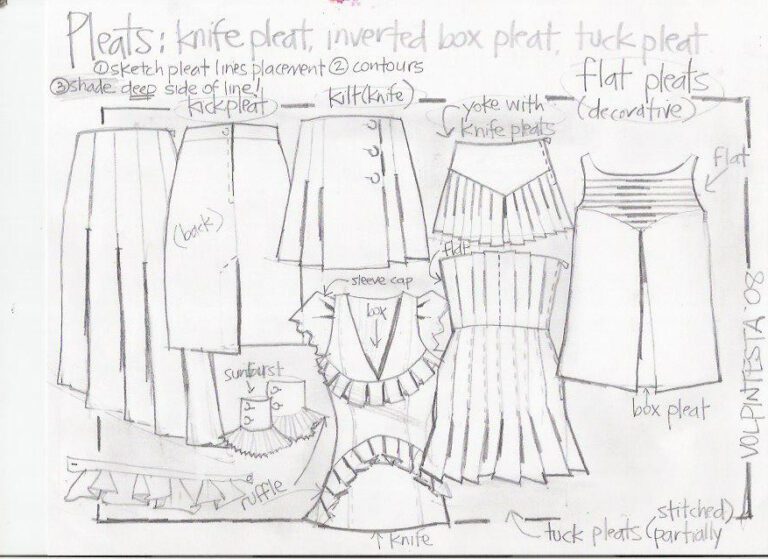 Pleats: knife pleat, inverted box pleat, tuck pleat
① sketch pleat lines placement ② contours
③ shade deep side of line!
flat pleats
(decorative)
kickpleat
kilt (knife)
yoke with
knife pleats
flat
(back)
flat
sleeve cap
box
sunburst
box pleat
ruffle
knife
tuck pleats (partially
stitched)
VOLPINTESTA '08